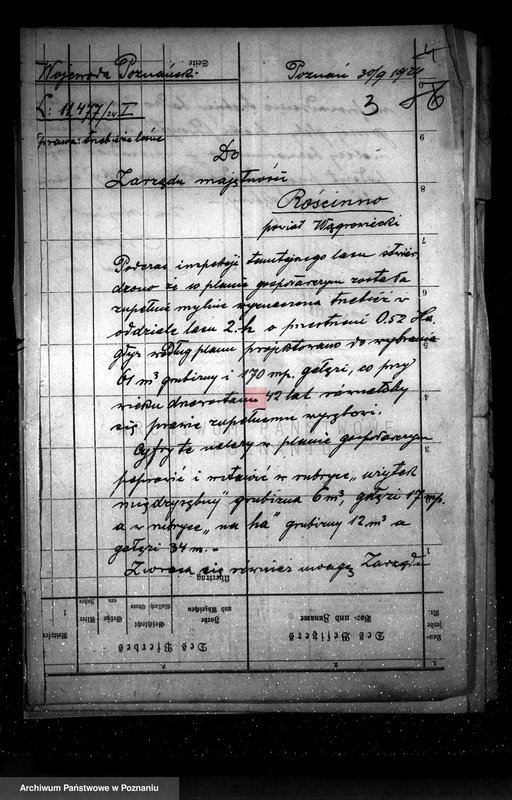 4
Wojewoda Poznański Seite Poznań 30/9 1924
L: 11.477/24 I 3
Sprawa: trebież leśnic
Do
Zarządu majętności
Rościnno
powiat Wągrowiecki
Podczas inspekcji tamtejszego lasu stwier
dzono że w planie gospodarczym została
zupełnie mylnie wyznaczona trzebież w
oddziale lasu 2.h o przestrzeni 0.52 Ha
gdyż według planu projektowano do wybrania
61 m³ grubizny i 170 mp. gałęzi, co przy
wieku drzewostanu 42 lat równałoby
się prawie zupełnemu wyrębowi.
Cyfry te należy w planie gospodarczym
poprawić i wstawić w rubryce „użytek
międzyrębny" grubizna 6 m³, gałęzi 17 mp.
a w rubryce „na ha" grubizny 12 m³ a
gałęzi 34 m. -
Zwraca się również uwagę Zarządu
Übertrag
Des Pferdes
Des Besitzers
Vor- und Zuname
Farbe und Abzeichen
Geschlecht
Größe
Alter
Archiwum Państwowe w Poznaniu